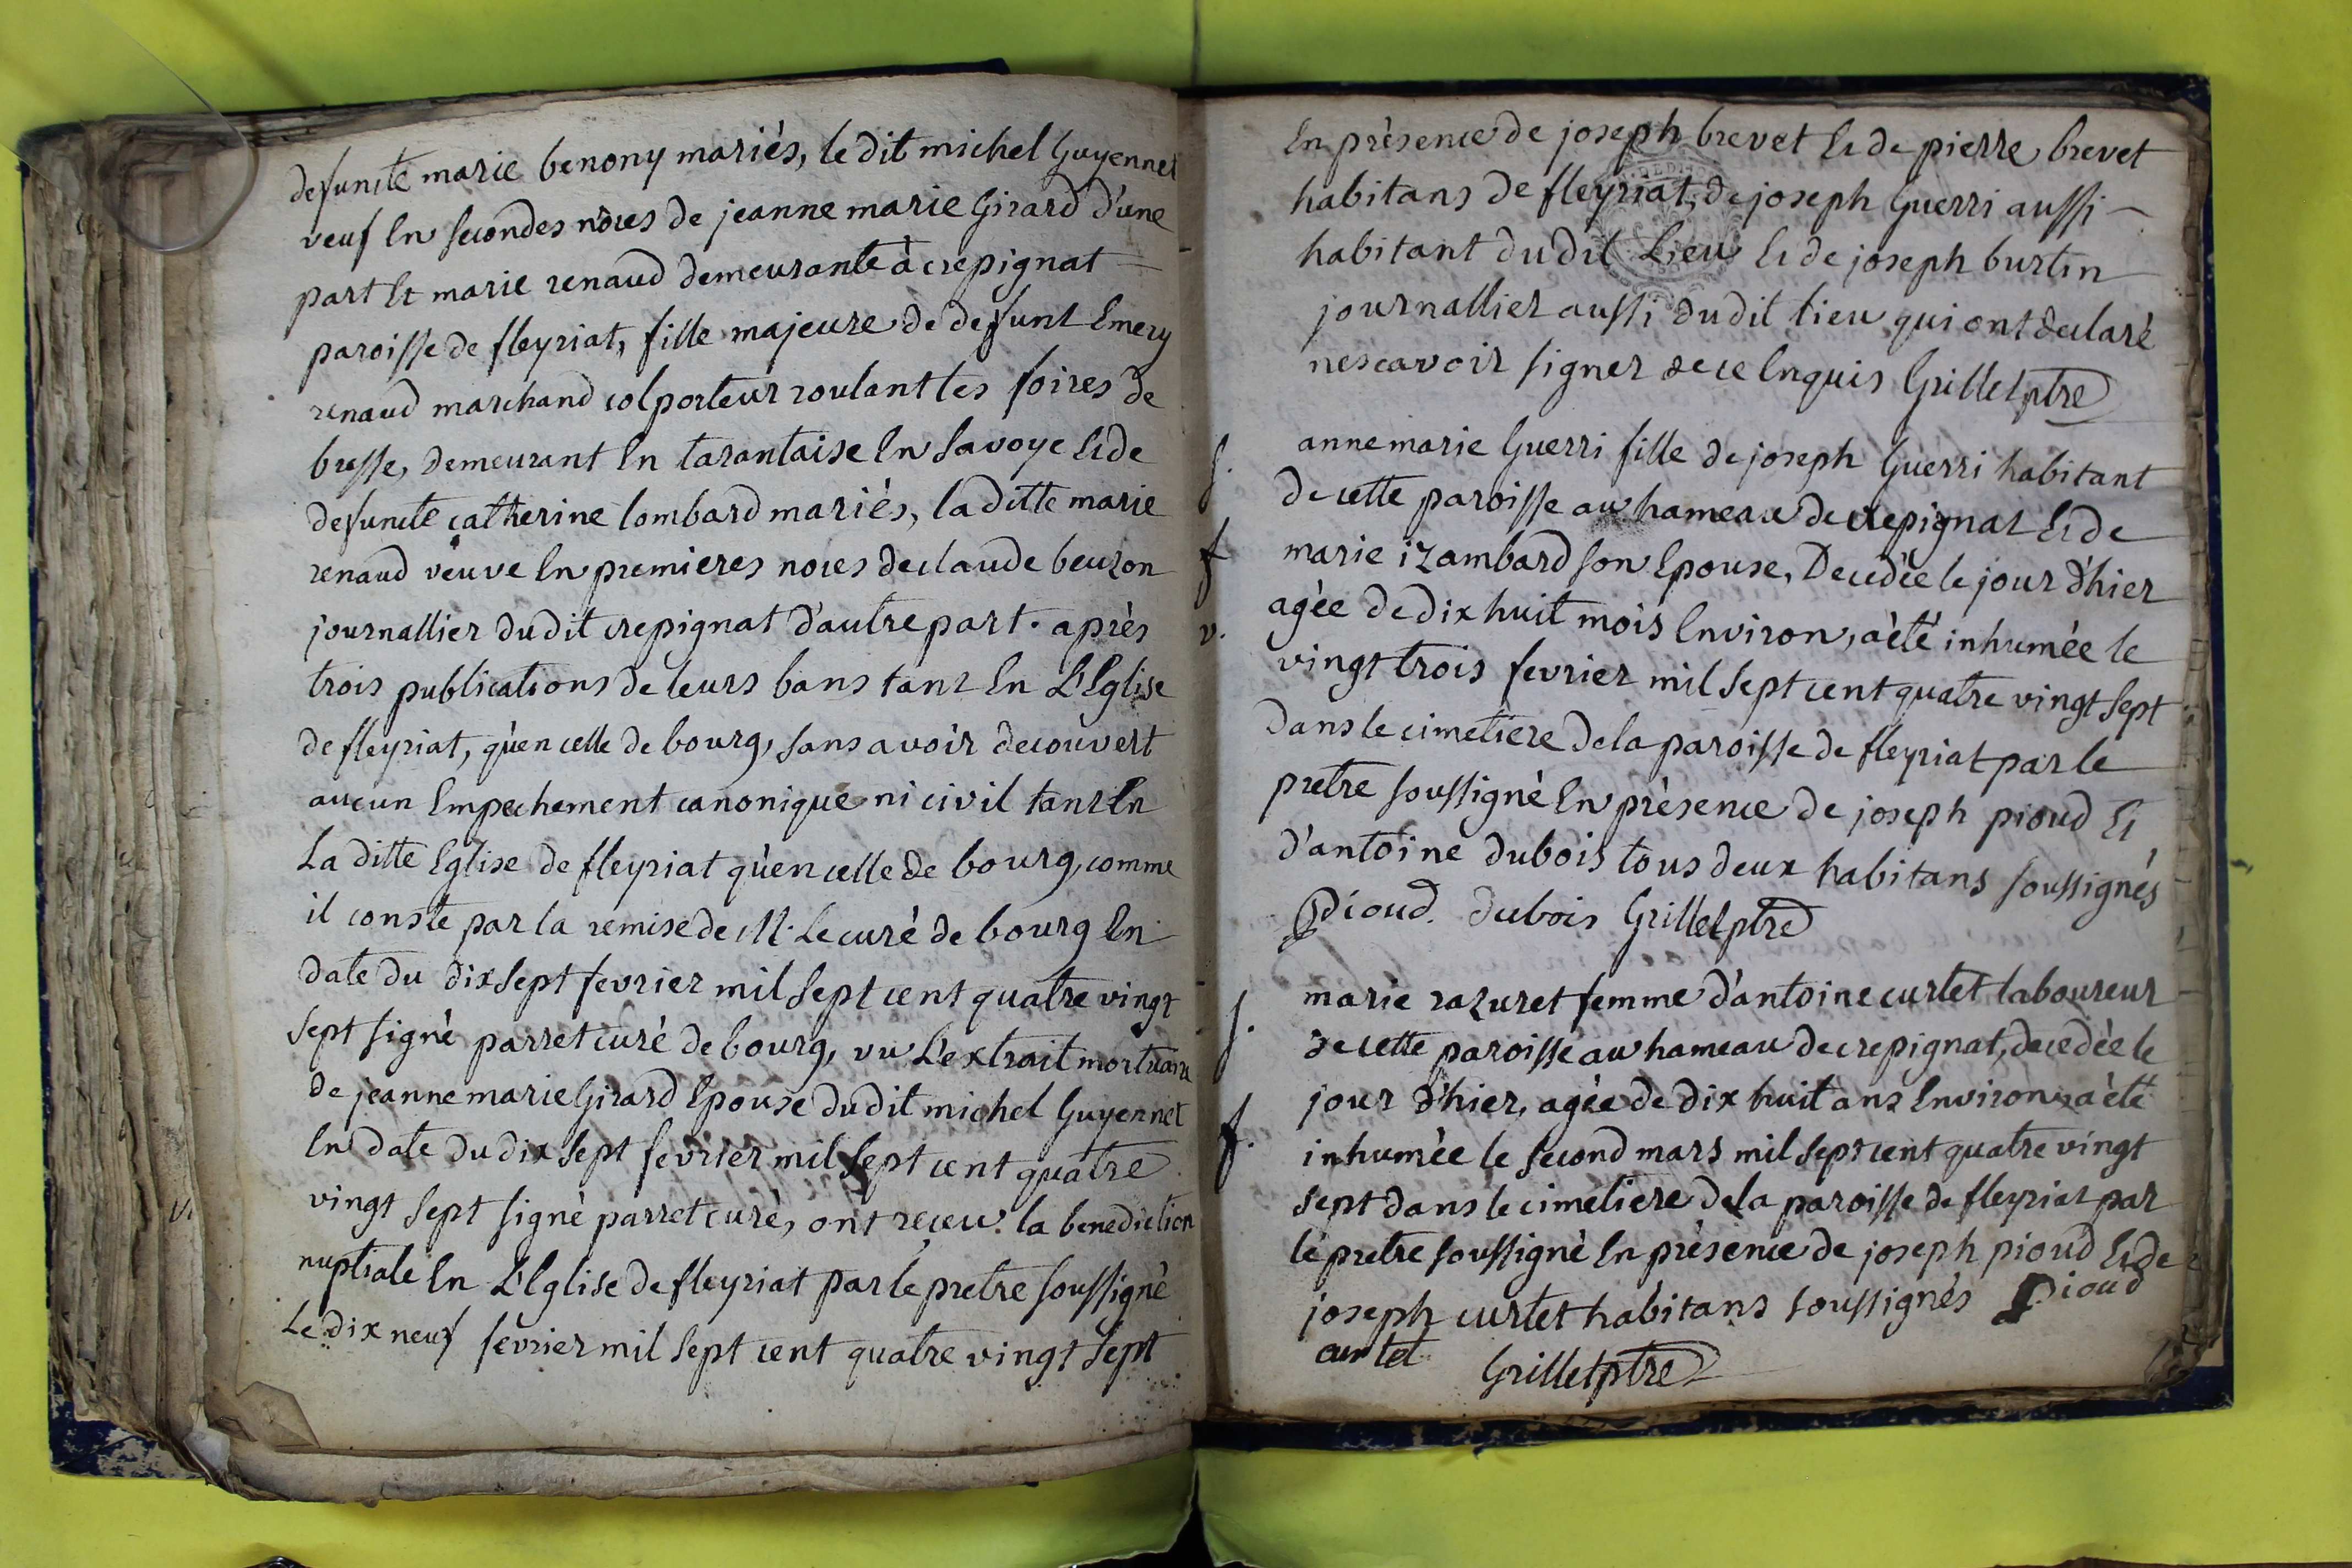 defuncte marie benony mariés, le dit michel Guyennet
veuf En secondes nôces de jeanne marie Girard d'une
part Et marie renaud demeurante à crepignat
paroisse de fleyriat, fille majeure de defunt Emery
renaud marchand colporteur roulant les foires de
bresse, demeurant En tarantaise En Savoye Et de
defuncte catherine lombard mariés, la ditte marie
renaud veuve En premieres noces de claude beuzon
journallier du dit crepignat d'autre part. après
trois publications de leurs bans tant En L'Eglise
de fleyriat, qu'en celle de bourg, sans avoir decouvert
aucun Empechement canonique ni civil tant En
La ditte Eglise de fleyriat qu'en celle de bourg, comme
il conste par la remise de M. Le curé de bourg En
date du dix sept fevrier mil sept cent quatre vingt
sept signé parret curé de bourg, vu L'extrait mortuaire
de jeanne marie Girard Epouse du dit michel Guyennet
En date du dix sept fevrier mil sept cent quatre
vingt sept signé parret curé, ont receu la benediction
nuptiale En L'Eglise de fleyriat par le pretre soussigné
Le dix neuf fevrier mil sept cent quatre vingt sept
En présence de joseph brevet Et de pierre brevet
habitans de fleyriat, de joseph Guerri aussi
habitant du dit Lieu Et de joseph burtin
journallier aussi du dit lieu qui ont declaré
ne scavoir signer de ce Enquis Grillet ptre
anne marie Guerri fille de joseph Guerri habitant
de cette paroisse au hameau de crepignat Et de
marie izambard son Epouse, Decedée le jour d'hier
agée de dix huit mois Environ, a été inhumée le
vingt trois fevrier mil sept cent quatre vingt sept
dans le cimetiere de la paroisse de fleyriat par le
pretre soussigné En présence de joseph pioud Et
d'antoine dubois tous deux habitans soussignés
Pioud. dubois Grillet ptre
marie razuret femme d'antoine curtet laboureur
de cette paroisse au hameau de crepignat, decedée le
jour d'hier, agée de dix huit ans Environ, a été
inhumée le second mars mil sept cent quatre vingt
sept dans le cimetiere de la paroisse de fleyriat par
le pretre soussigné En présence de joseph pioud Et de
joseph curtet habitans soussignés Pioud
curtet Grillet ptre